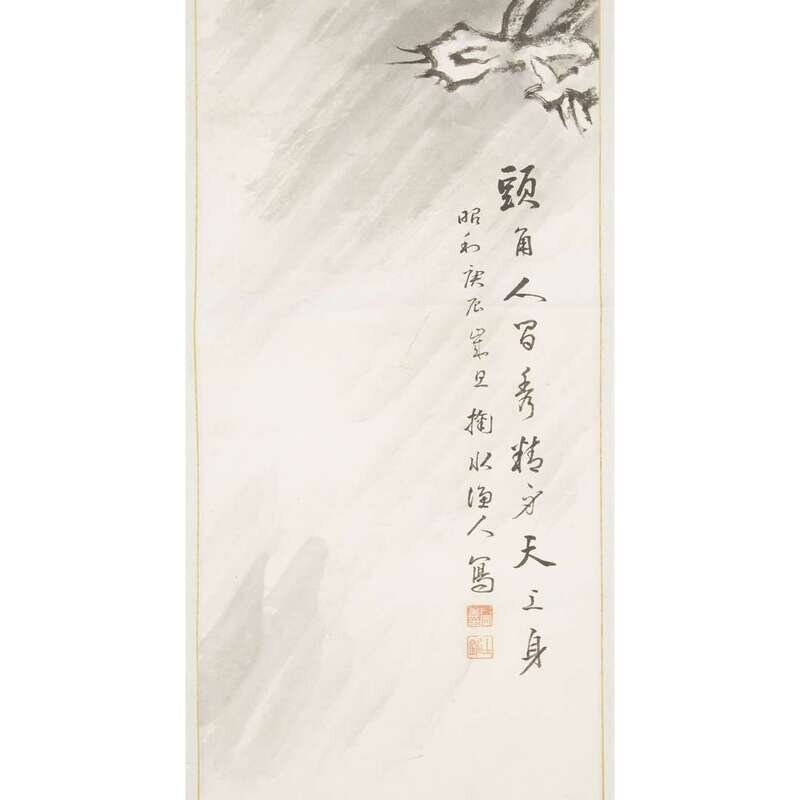 頭角人間秀精天上身
昭和庚辰歳旦 掬水漁人寫